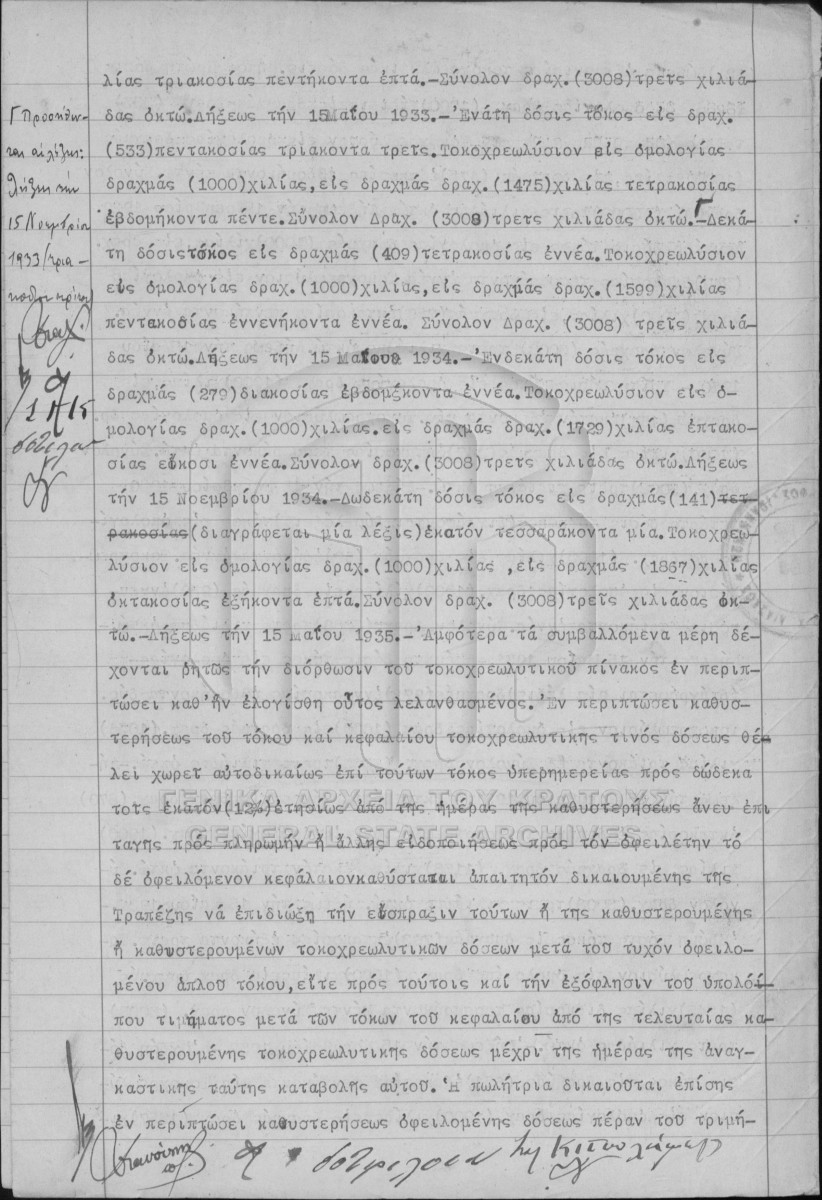 λίας τριακοσίας πεντήκοντα ἑπτά.-Σύνολον δραχ.(3008)τρεῖς χιλιά-
δας ὀκτώ.Λήξεως τήν 15Μαΐου 1933.-Ἐνάτη δόσις τόκος εἰς δραχ.
(533)πεντακοσίας τριάκοντα τρεῖς.Τοκοχρεωλύσιον εἰς ὁμολογίας
δραχμάς (1000)χιλίας,εἰς δραχμάς δραχ.(1475)χιλίας τετρακοσίας
ἑβδομήκοντα πέντε.Σύνολον Δραχ. (3008)τρεῖς χιλιάδας ὀκτώ.Γ-Δεκά-
τη δόσιςτόκος εἰς δραχμάς (409)τετρακοσίας ἐννέα.Τοκοχρεωλύσιον
εἰς ὁμολογίας δραχ.(1000)χιλίας,εἰς δραχμάς δραχ.(1599)χιλίας
πεντακοσίας ἐννενήκοντα ἐννέα. Σύνολον Δραχ. (3008) τρεῖς χιλιά-
δας ὀκτώ.Λήξεως τήν 15 Μαΐου 1934.-Ἑνδεκάτη δόσις τόκος εἰς
δραχμάς (279)διακοσίας ἑβδομήκοντα ἐννέα.Τοκοχρεωλύσιον εἰς ὁ-
μολογίας δραχ.(1000)χιλίας.εἰς δραχμάς δραχ.(1729)χιλίας ἑπτακο-
σίας εἴκοσι ἐννέα.Σύνολον δραχ.(3008)τρεῖς χιλιάδας ὀκτώ.Λήξεως
τήν 15 Νοεμβρίου 1934.-Δωδεκάτη δόσις τόκος εἰς δραχμάς(141)τετ-
ρακοσίας(διαγράφεται μία λέξις)ἑκατόν τεσσαράκοντα μία.Τοκοχρεω-
λύσιον εἰς ὁμολογίας δραχ.(1000)χιλίας ,εἰς δραχμάς (1867)χιλίας
ὀκτακοσίας ἑξήκοντα ἑπτά.Σύνολον δραχ. (3008)τρεῖς χιλιάδας ὀκ-
τώ.-Λήξεως τήν 15 Μαΐου 1935.-Ἀμφότερα τά συμβαλλόμενα μέρη δέ-
χονται ῥητῶς τήν διόρθωσιν τοῦ τοκοχρεωλυτικοῦ πίνακος ἐν περιπ-
τώσει καθ'ἥν ἐλογίσθη οὗτος λελανθασμένος.Ἐν περιπτώσει καθυσ-
τερήσεως τοῦ τόκου καί κεφαλαίου τοκοχρεωλυτικῆς τινός δόσεως θέ-
λει χωρεῖ αὐτοδικαίως ἐπί τούτων τόκος ὑπερημερείας πρός δώδεκα
τοῖς ἑκατόν(12%)ἐτησίως ἀπό τῆς ἡμέρας τῆς καθυστερήσεως ἄνευ ἐπι
ταγῆς πρός πληρωμήν ἤ ἄλλης εἰδοποιήσεως πρός τόν ὀφειλέτην τό
δέ ὀφειλόμενον κεφάλαιονκαθύσταται ἀπαιτητόν δικαιουμένης τῆς
Τραπέζης νά ἐπιδιώξῃ τήν εἴσπραξιν τούτων ἤ τῆς καθυστερουμένης
ἤ καθυστερουμένων τοκοχρεωλυτικῶν δόσεων μετά τοῦ τυχόν ὀφειλο-
μένου ἁπλοῦ τόκου,εἴτε πρός τούτοις καί τήν ἐξόφλησιν τοῦ ὑπολοί-
που τιμήματος μετά τῶν τόκων τοῦ κεφαλαίου ἀπό τῆς τελευταίας κα-
θυστερουμένης τοκοχρεωλυτικῆς δόσεως μέχρι τῆς ἡμέρας τῆς ἀναγ-
καστικῆς ταύτης καταβολῆς αὐτοῦ.Ἡ πωλήτρια δικαιοῦται ἐπίσης
ἐν περιπτώσει καθυστερήσεως ὀφειλομένης δόσεως πέραν τοῦ τριμή-
Γ Προσετέθη-
σαν αἱ λέξεις:
Λήξις τήν
15 Νοεμβρίου
1933
ΓΕΝΙΚΑ ΑΡΧΕΙΑ ΤΟΥ ΚΡΑΤΟΥΣ
GENERAL STATE ARCHIVES